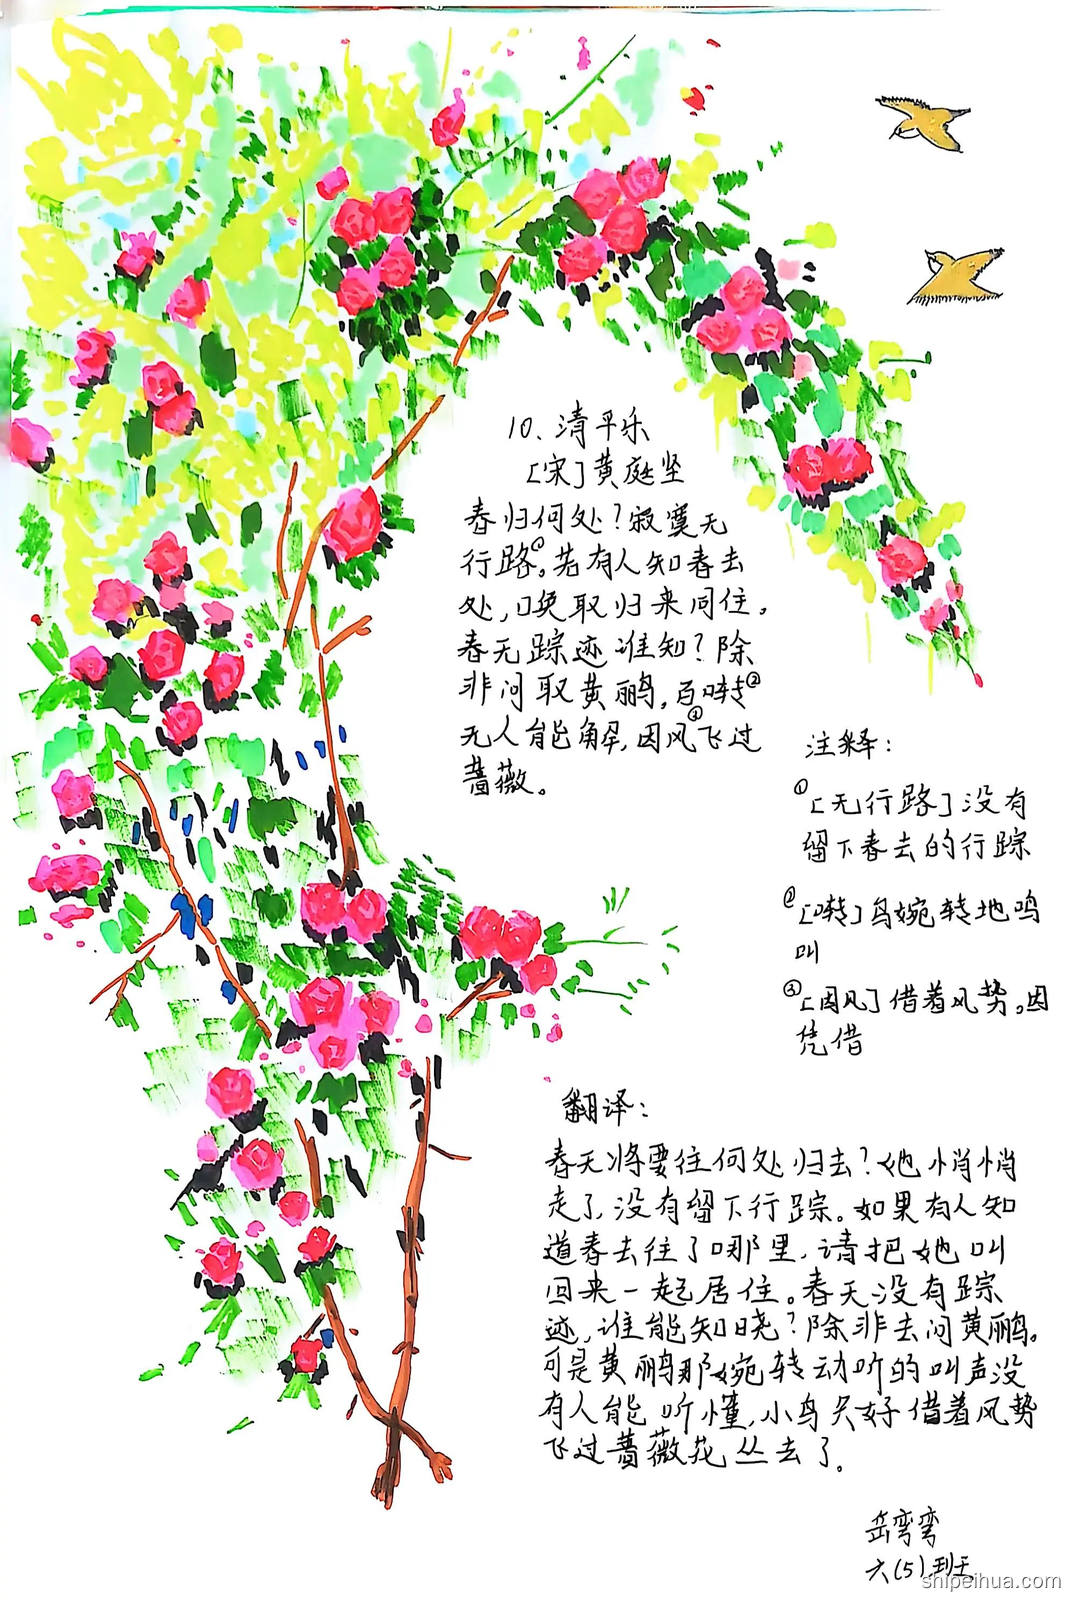 10、清平乐
[宋]黄庭坚
春归何处？寂寞无
行路①。若有人知春去
处，唤取归来同住。
春无踪迹谁知？除
非问取黄鹂，百啭②
无人能解，因风③飞过
蔷薇。
注释：
①[无行路]没有
留下春去的行踪
②[啭]鸟婉转地鸣
叫
③[因风]借着风势。因
凭借
翻译：
春天将要往何处归去？她悄悄
走了，没有留下行踪。如果有人知
道春去往了哪里，请把她叫
回来一起居住。春天没有踪
迹，谁能知晓？除非去问黄鹂。
可是黄鹂那婉转动听的叫声没
有人能听懂，小鸟只好借着风势
飞过蔷薇花丛去了。
岳弯弯
六(5)班
shipeihua.com